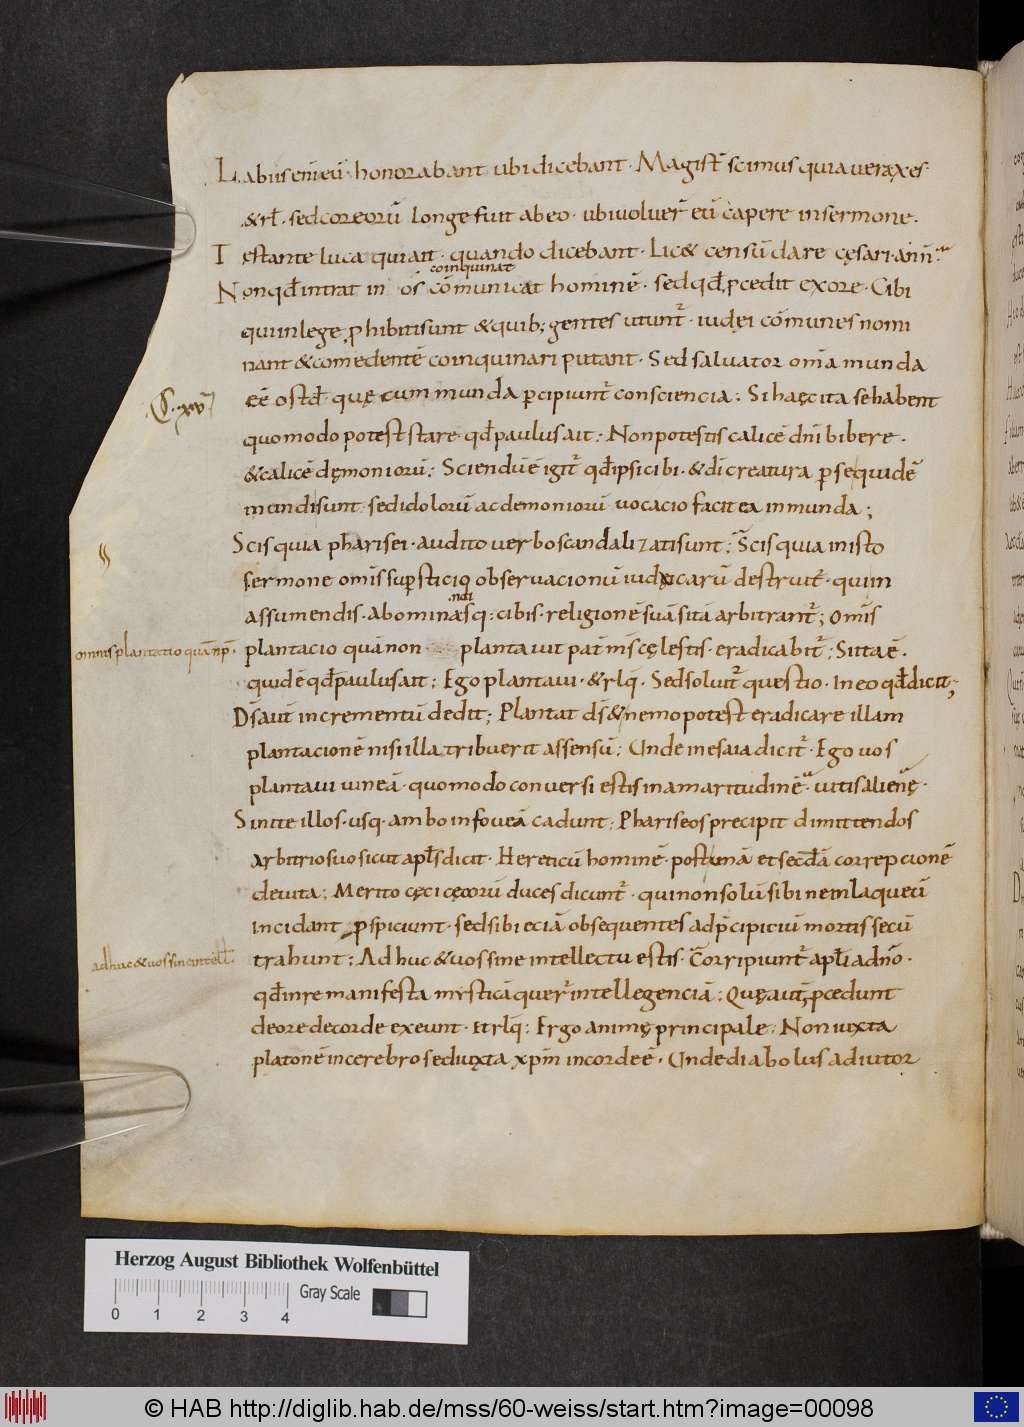 Labiis eni͞ eū honorabant ubi dicebant · Magist̄ scimus quia uerax es ·
& rł · sed cor eorū longe fuit ab eo · ubi uoluer̄ eū capere in sermone ·
Testante luca qui ait · quando dicebant · Lic& censū dare cęsari · an nī
coinquinat
Non qd̄ intrat in os cōmunicat hominē · sed qd̄ pcedit ex ore · Cibi
qui in lege phibiti sunt & quib; gentes utunt̄ · iudęi cōmunes nomi
nant & comedentē coinquinari putant · Sed saluator om̄a munda
eē ostd̄ · quę cum munda pcipiunt̄ consciencia : Si hęc ita se habent
C · xv
quomodo potest stare · qd̄ paulus ait : Non potestis calicē dn̄i bibere ·
& calicē dęmoniorū : Sciendū ē igit̄ qd̄ ipsi cibi · & dī creatura p se quidē
mundi sunt · sed idolorū ac demoniorū uocacio facit ea inmunda ;
Scis quia pharisei · audito uerbo scandalizati sunt ; Scis quia in isto
sermone om̄is supsticio obseruacionū iudaicarū destruit̄ · qui in
ndi
assumendis · abominasq : cibis · religionē suā sitā arbitrant̄ ; Om̄is
omnis plantatio quā n p̄ ·
plantacio quā non plantauit pat̄ m̄s cęlestis · eradicabit̄ ; Si ita ē ·
quid ē qd̄ paulus ait : Ego plantaui · & rlq · Sed soluit̄ questio · in eo qd̄ dicit ;
Ds̄ aut̄ incrementū dedit ; Plantat ds̄ & nemo potest eradicare illam
plantacionē nisi illa tribuerit assensū ; Unde in esaia dicit̄ · Ego uos
plantaui uineā · quomodo conuersi estis in amaritudinē · uitis alienę ·
Sinite illos · usq · ambo in foueā cadunt ; Phariseos precipit dimittendos
arbitrio suo sicut apłs dicit · Hereticū hominē · post unā et secd̄ā correpcionē
deuita ; Merito cęci cęcorū duces dicunt̄ · qui non solū sibi ne in laqueū
incidant pspiciunt · sed sibi eciā obsequentes ad p̄cipiciū mortis secū
adhuc & uos sine intell̄ ·
trahunt : Adhuc & uos sine intellectu estis · Corripiunt̄ apłi a dn̄o ·
qd̄ in re manifesta misticā quer̄ intellegenciā : Quę aut̄ pcedunt
de ore de corde exeunt · Et rlq : Ergo animę principale ; Non iuxta
platonē in cerebro sed iuxta xpm̄ in corde ē · Unde diabolus adiutor
Herzog August Bibliothek Wolfenbüttel
Gray Scale
0 1 2 3 4
© HAB http://diglib.hab.de/mss/60-weiss/start.htm?image=00098